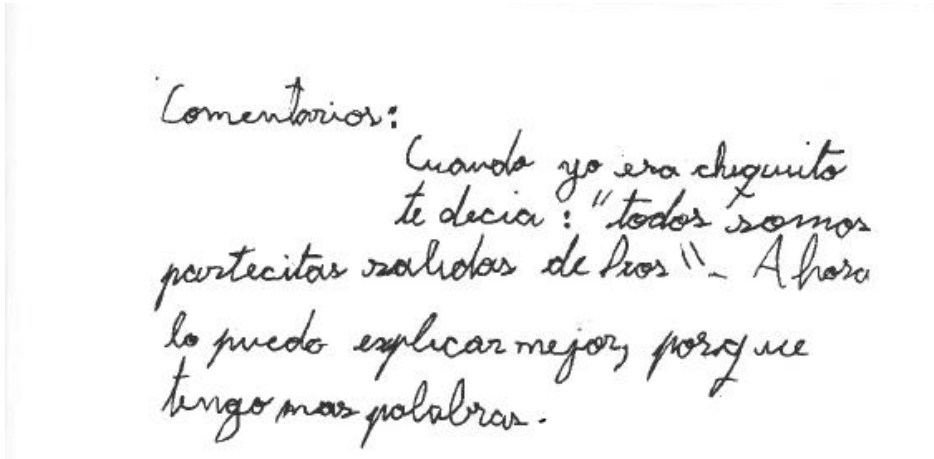 Comentarios:
Cuando yo era chiquito
te decia: "todos somos
partecitas salidas de Dios". Ahora
lo puedo explicar mejor, porque
tengo mas palabras.